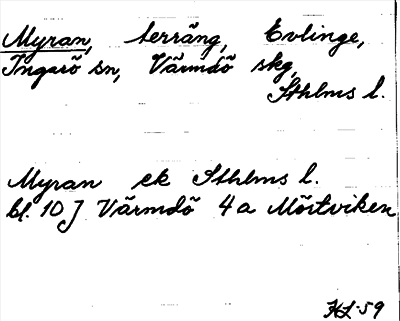 Myran, terräng, Evlinge,
Ingarö sn, Värmdö skg,
Sthlms l.
Myran ek Sthlms l.
bl. 10 J Värmdö 4a Mörtviken
HL-59